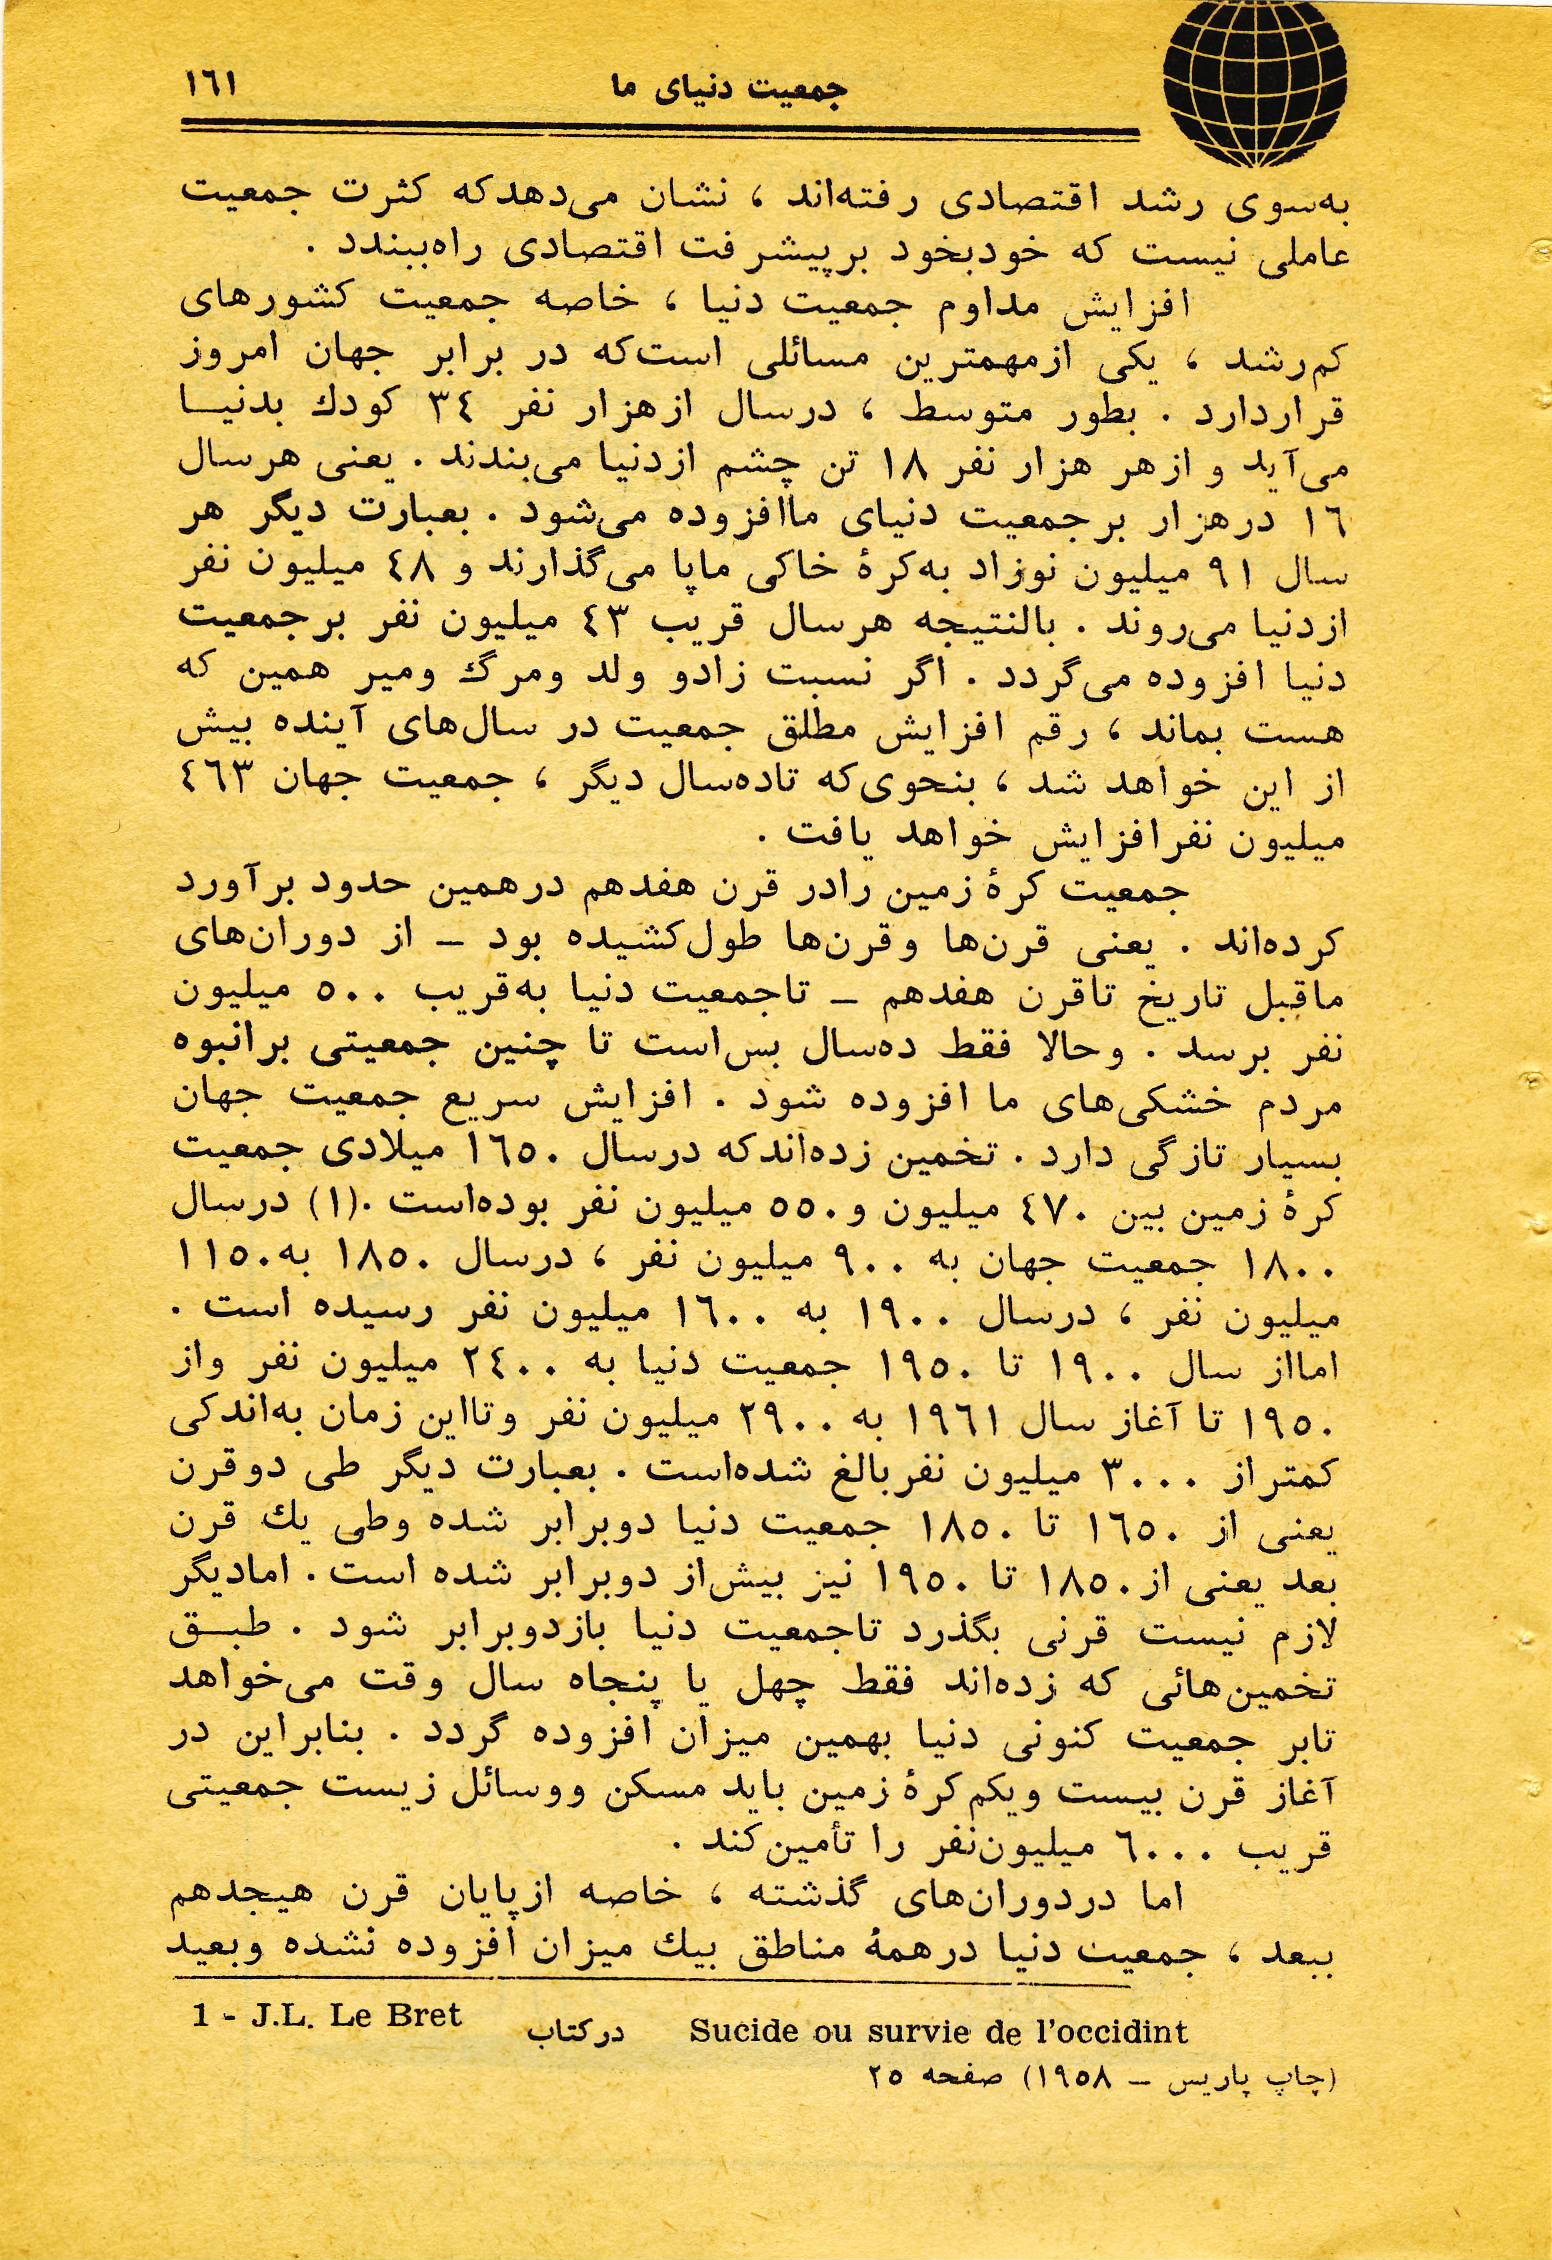 جمعیت دنیای ما ١٦١
به‌سوی رشد اقتصادی رفته‌اند ، نشان می‌دهدکه کثرت جمعیت
عاملی نیست که خودبخود برپیشرفت اقتصادی راه‌ببندد .
افزایش مداوم جمعیت دنیا ، خاصه جمعیت کشورهای
کم‌رشد ، یکی ازمهمترین مسائلی است‌که در برابر جهان امروز
قراردارد . بطور متوسط ، درسال ازهزار نفر ٣٤ کودك بدنیــا
می‌آید و ازهر هزار نفر ١٨ تن چشم ازدنیا می‌بندند . یعنی هرسال
١٦ درهزار برجمعیت دنیای ماافزوده می‌شود . بعبارت دیگر هر
سال ٩١ میلیون نوزاد به‌کرۀ خاکی ماپا می‌گذارند و ٤٨ میلیون نفر
ازدنیا می‌روند . بالنتیجه هرسال قریب ٤٣ میلیون نفر برجمعیت
دنیا افزوده می‌گردد . اگر نسبت زادو ولد ومرگ ومیر همین که
هست بماند ، رقم افزایش مطلق جمعیت در سال‌های آینده بیش
از این خواهد شد ، بنحوی‌که تاده‌سال دیگر ، جمعیت جهان ٤٦٣
میلیون نفرافزایش خواهد یافت .
جمعیت کرۀ زمین رادر قرن هفدهم درهمین حدود برآورد
کرده‌اند . یعنی قرن‌ها وقرن‌ها طول‌کشیده بود – از دوران‌های
ماقبل تاریخ تاقرن هفدهم – تاجمعیت دنیا به‌قریب ٥٠٠ میلیون
نفر برسد . وحالا فقط ده‌سال بس‌است تا چنین جمعیتی برانبوه
مردم خشکی‌های ما افزوده شود . افزایش سریع جمعیت جهان
بسیار تازگی دارد . تخمین زده‌اندکه درسال ١٦٥٠ میلادی جمعیت
کرۀ زمین بین ٤٧٠ میلیون و٥٥٠ میلیون نفر بوده‌است .(١) درسال
١٨٠٠ جمعیت جهان به ٩٠٠ میلیون نفر ، درسال ١٨٥٠ به١١٥٠
میلیون نفر ، درسال ١٩٠٠ به ١٦٠٠ میلیون نفر رسیده است .
امااز سال ١٩٠٠ تا ١٩٥٠ جمعیت دنیا به ٢٤٠٠ میلیون نفر واز
١٩٥٠ تا آغاز سال ١٩٦١ به ٢٩٠٠ میلیون نفر وتااین زمان به‌اندکی
کمتراز ٣٠٠٠ میلیون نفربالغ شده‌است . بعبارت دیگر طی دوقرن
یعنی از ١٦٥٠ تا ١٨٥٠ جمعیت دنیا دوبرابر شده وطی یك قرن
بعد یعنی از١٨٥٠ تا ١٩٥٠ نیز بیش‌از دوبرابر شده است . امادیگر
لازم نیست قرنی بگذرد تاجمعیت دنیا بازدوبرابر شود . طبــق
تخمین‌هائی که زده‌اند فقط چهل یا پنجاه سال وقت می‌خواهد
تابر جمعیت کنونی دنیا بهمین میزان افزوده گردد . بنابراین در
آغاز قرن بیست ویکم کرۀ زمین باید مسکن ووسائل زیست جمعیتی
قریب ٦٠٠٠ میلیون‌نفر را تأمین‌کند .
اما دردوران‌های گذشته ، خاصه ازپایان قرن هیجدهم
ببعد ، جمعیت دنیا درهمۀ مناطق بیك میزان افزوده نشده وبعید
1 - J.L. Le Bret درکتاب Sucide ou survie de l’occidint
(چاپ پاریس – ١٩٥٨) صفحه ٢٥